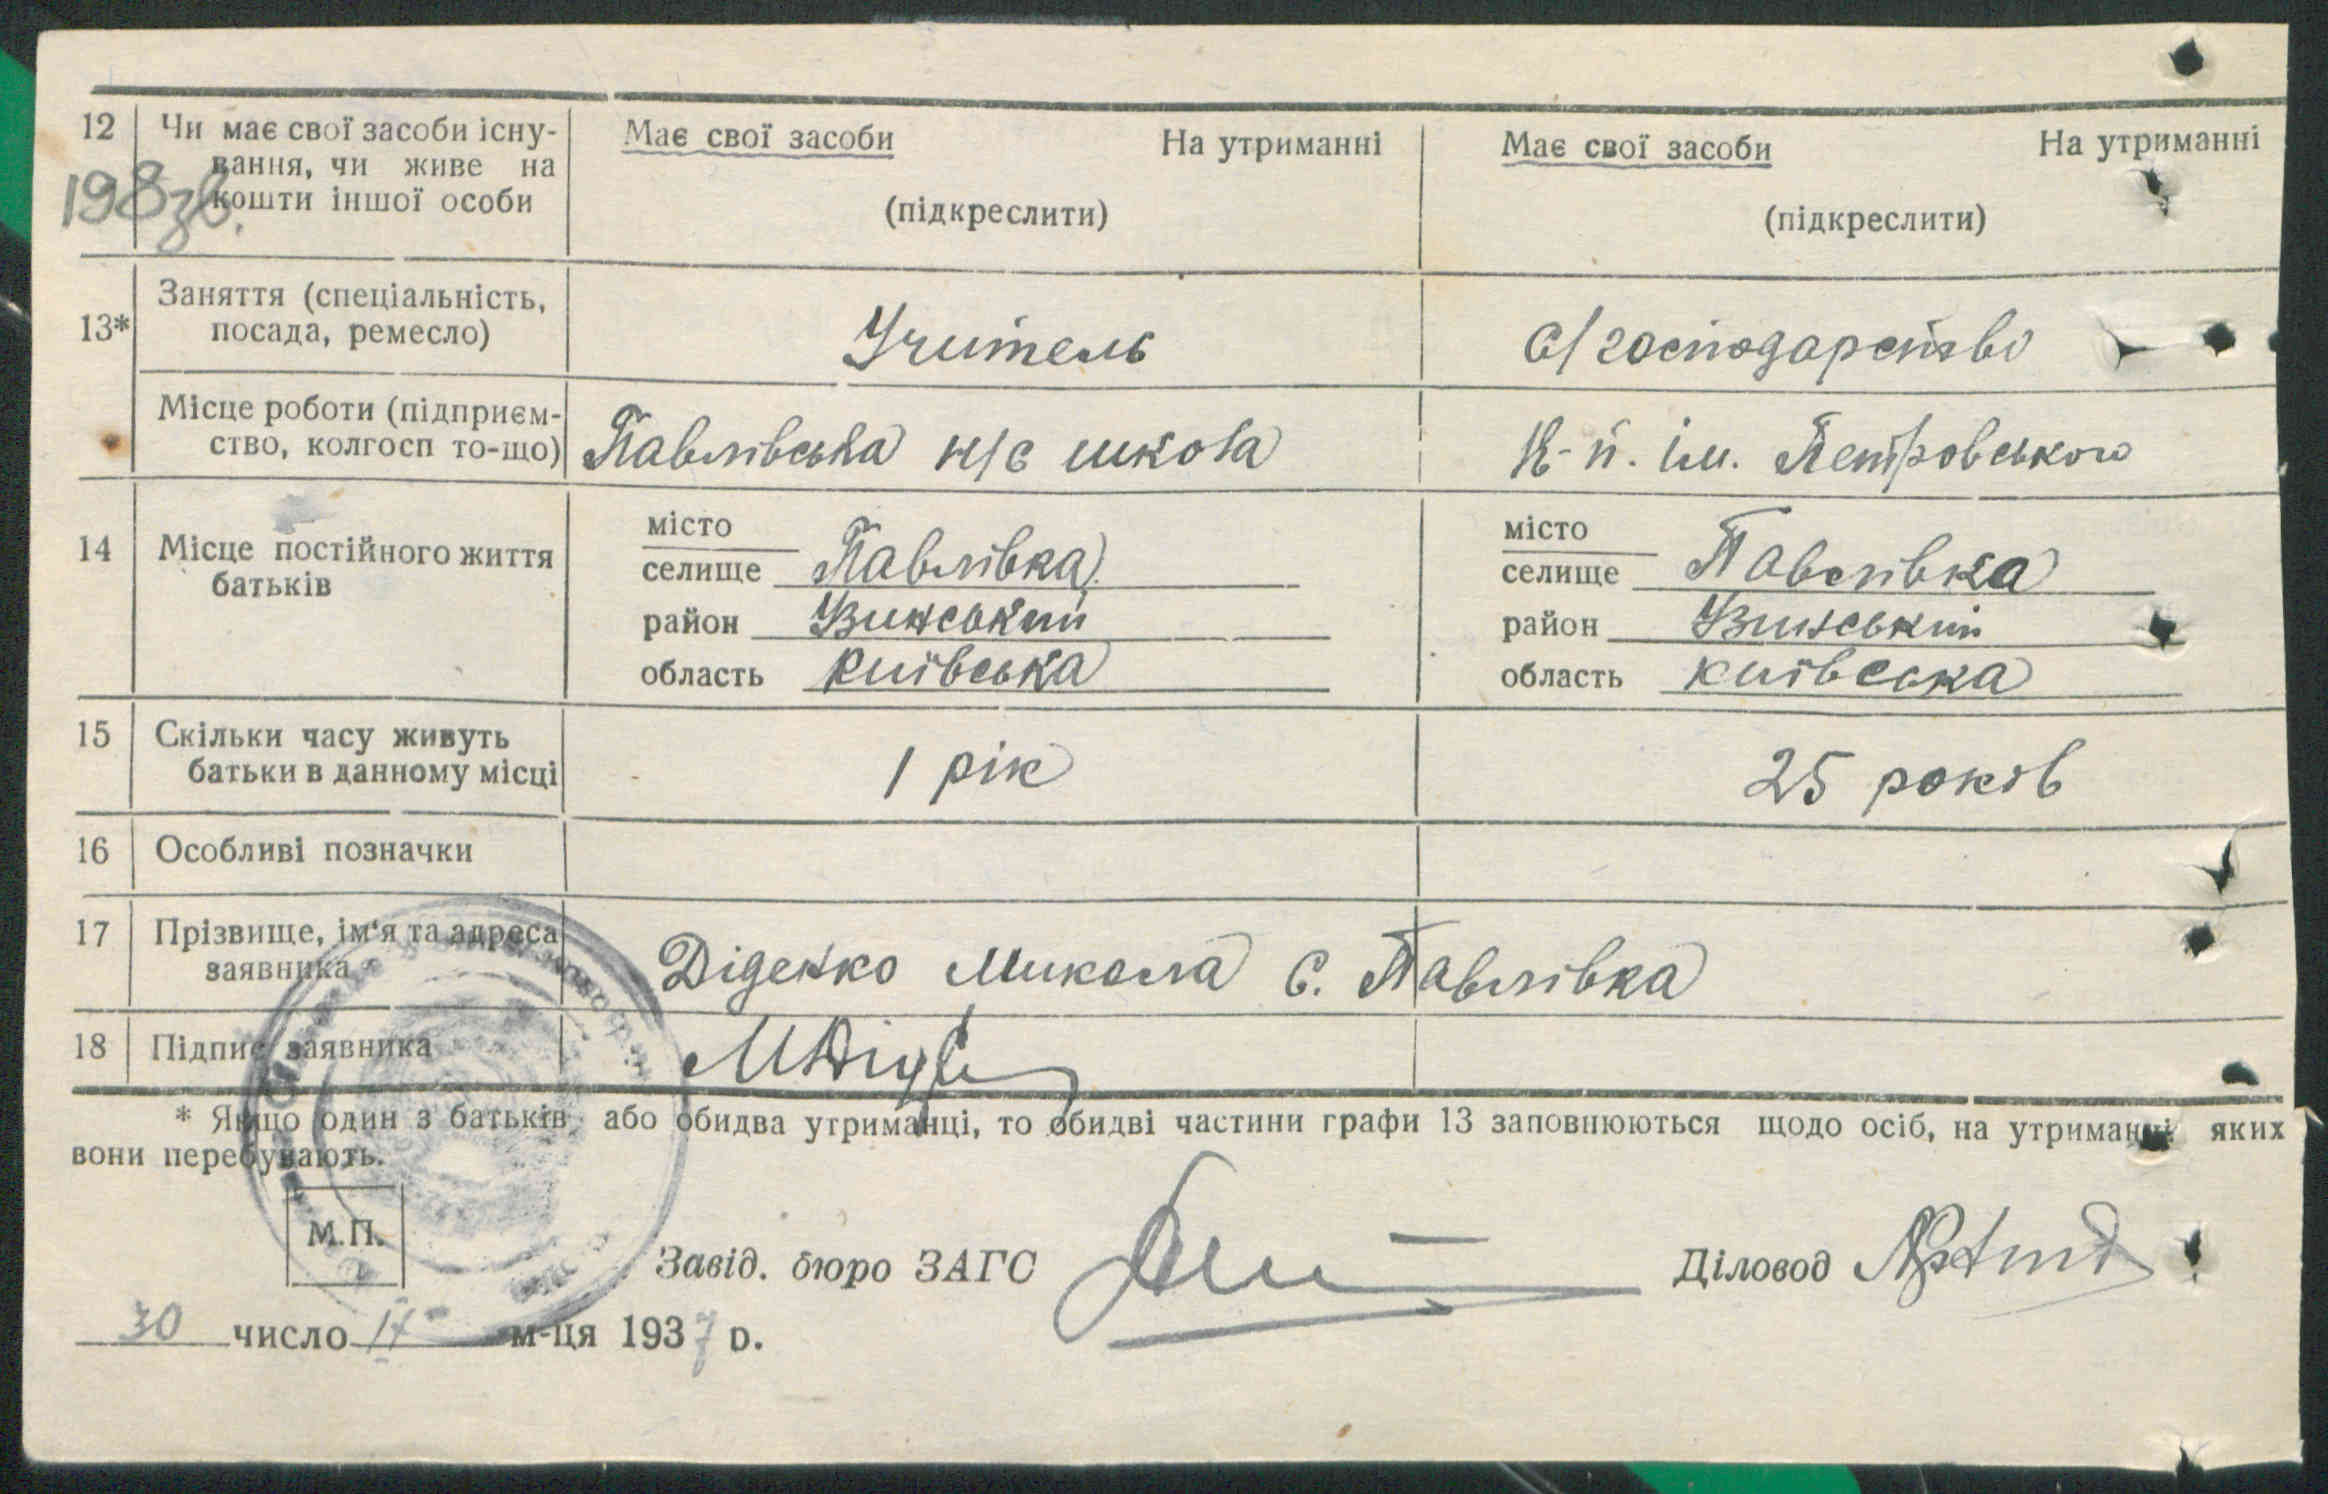 12 Чи має свої засоби існу- Має свої засоби На утриманні Має свої засоби На утриманні
вання, чи живе на
198зв. кошти іншої особи (підкреслити) (підкреслити)
Заняття (спеціальність,
13* посада, ремесло) Учитель с/господарство
Місце роботи (підприєм-
ство, колгосп то-що) Павлівська н/с школа К-п. ім. Петровського
місто місто
14 Місце постійного життя селище Павлівка селище Павлівка
батьків
район Узинський район Узинський
область київська область київська
15 Скільки часу живуть
батьки в данному місці 1 рік 25 років
16 Особливі позначки
17 Прізвище, ім'я та адреса
заявника Діденко Микола с. Павлівка
18 Підпис заявника
* Якщо один з батьків, або обидва утриманці, то обидві частини графи 13 заповнюються щодо осіб, на утриманні яких
вони перебувають.
М.П.
Завід. бюро ЗАГС Діловод
30 число м-ця 1937 р.